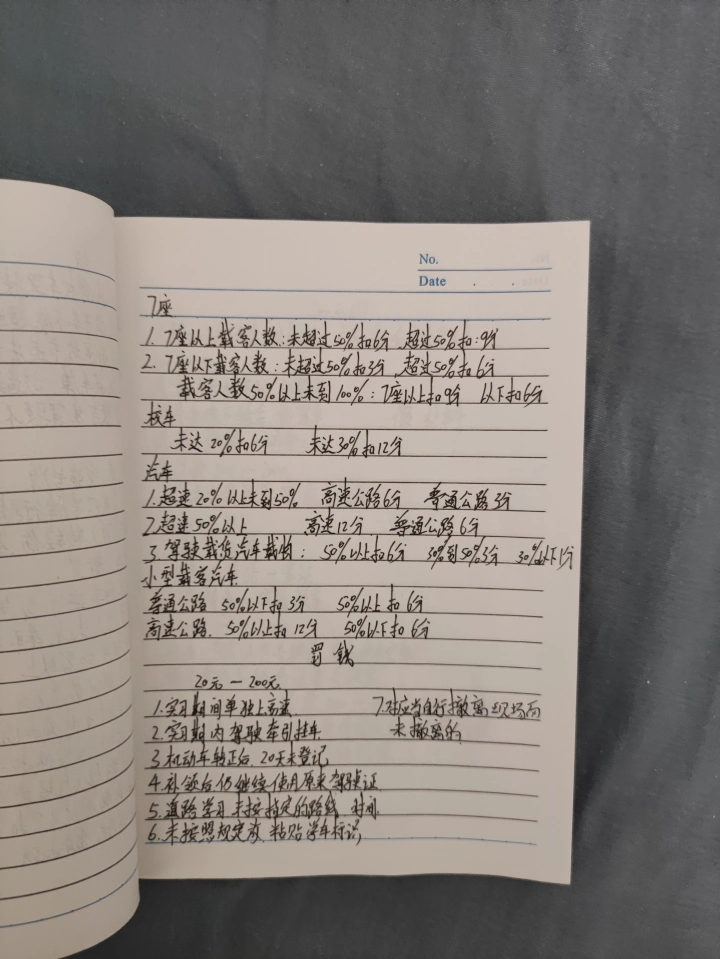 No.
Date
7座
1. 7座以上载客人数:未超过50%扣6分,超过50%扣:9分
2. 7座以下载客人数:未超过50%扣3分,超过50%扣6分
载客人数50%以上未到100%:7座以上扣9分 以下扣6分
校车
未达20%扣6分 未达30%扣12分
汽车
1.超速20%以上未到50% 高速公路6分 普通公路3分
2.超速50%以上 高速12分 普通公路6分
3.驾驶载货汽车载物: 50%以上扣6分 30%到50%3分 30%以下1分
小型载客汽车
普通公路 50%以下扣3分 50%以上扣6分
高速公路. 50%以上扣12分 50%以下扣6分
罚钱
20元—200元
1.实习期间单独上高速 7.对应当自行撤离现场而
2.实习期内驾驶牵引挂车 未撤离的
3.机动车转正后,20天未登记
4.补领后仍继续使用原来驾驶证
5.道路学习未按指定的路线,时间
6.未按照规定放,粘贴学车标识